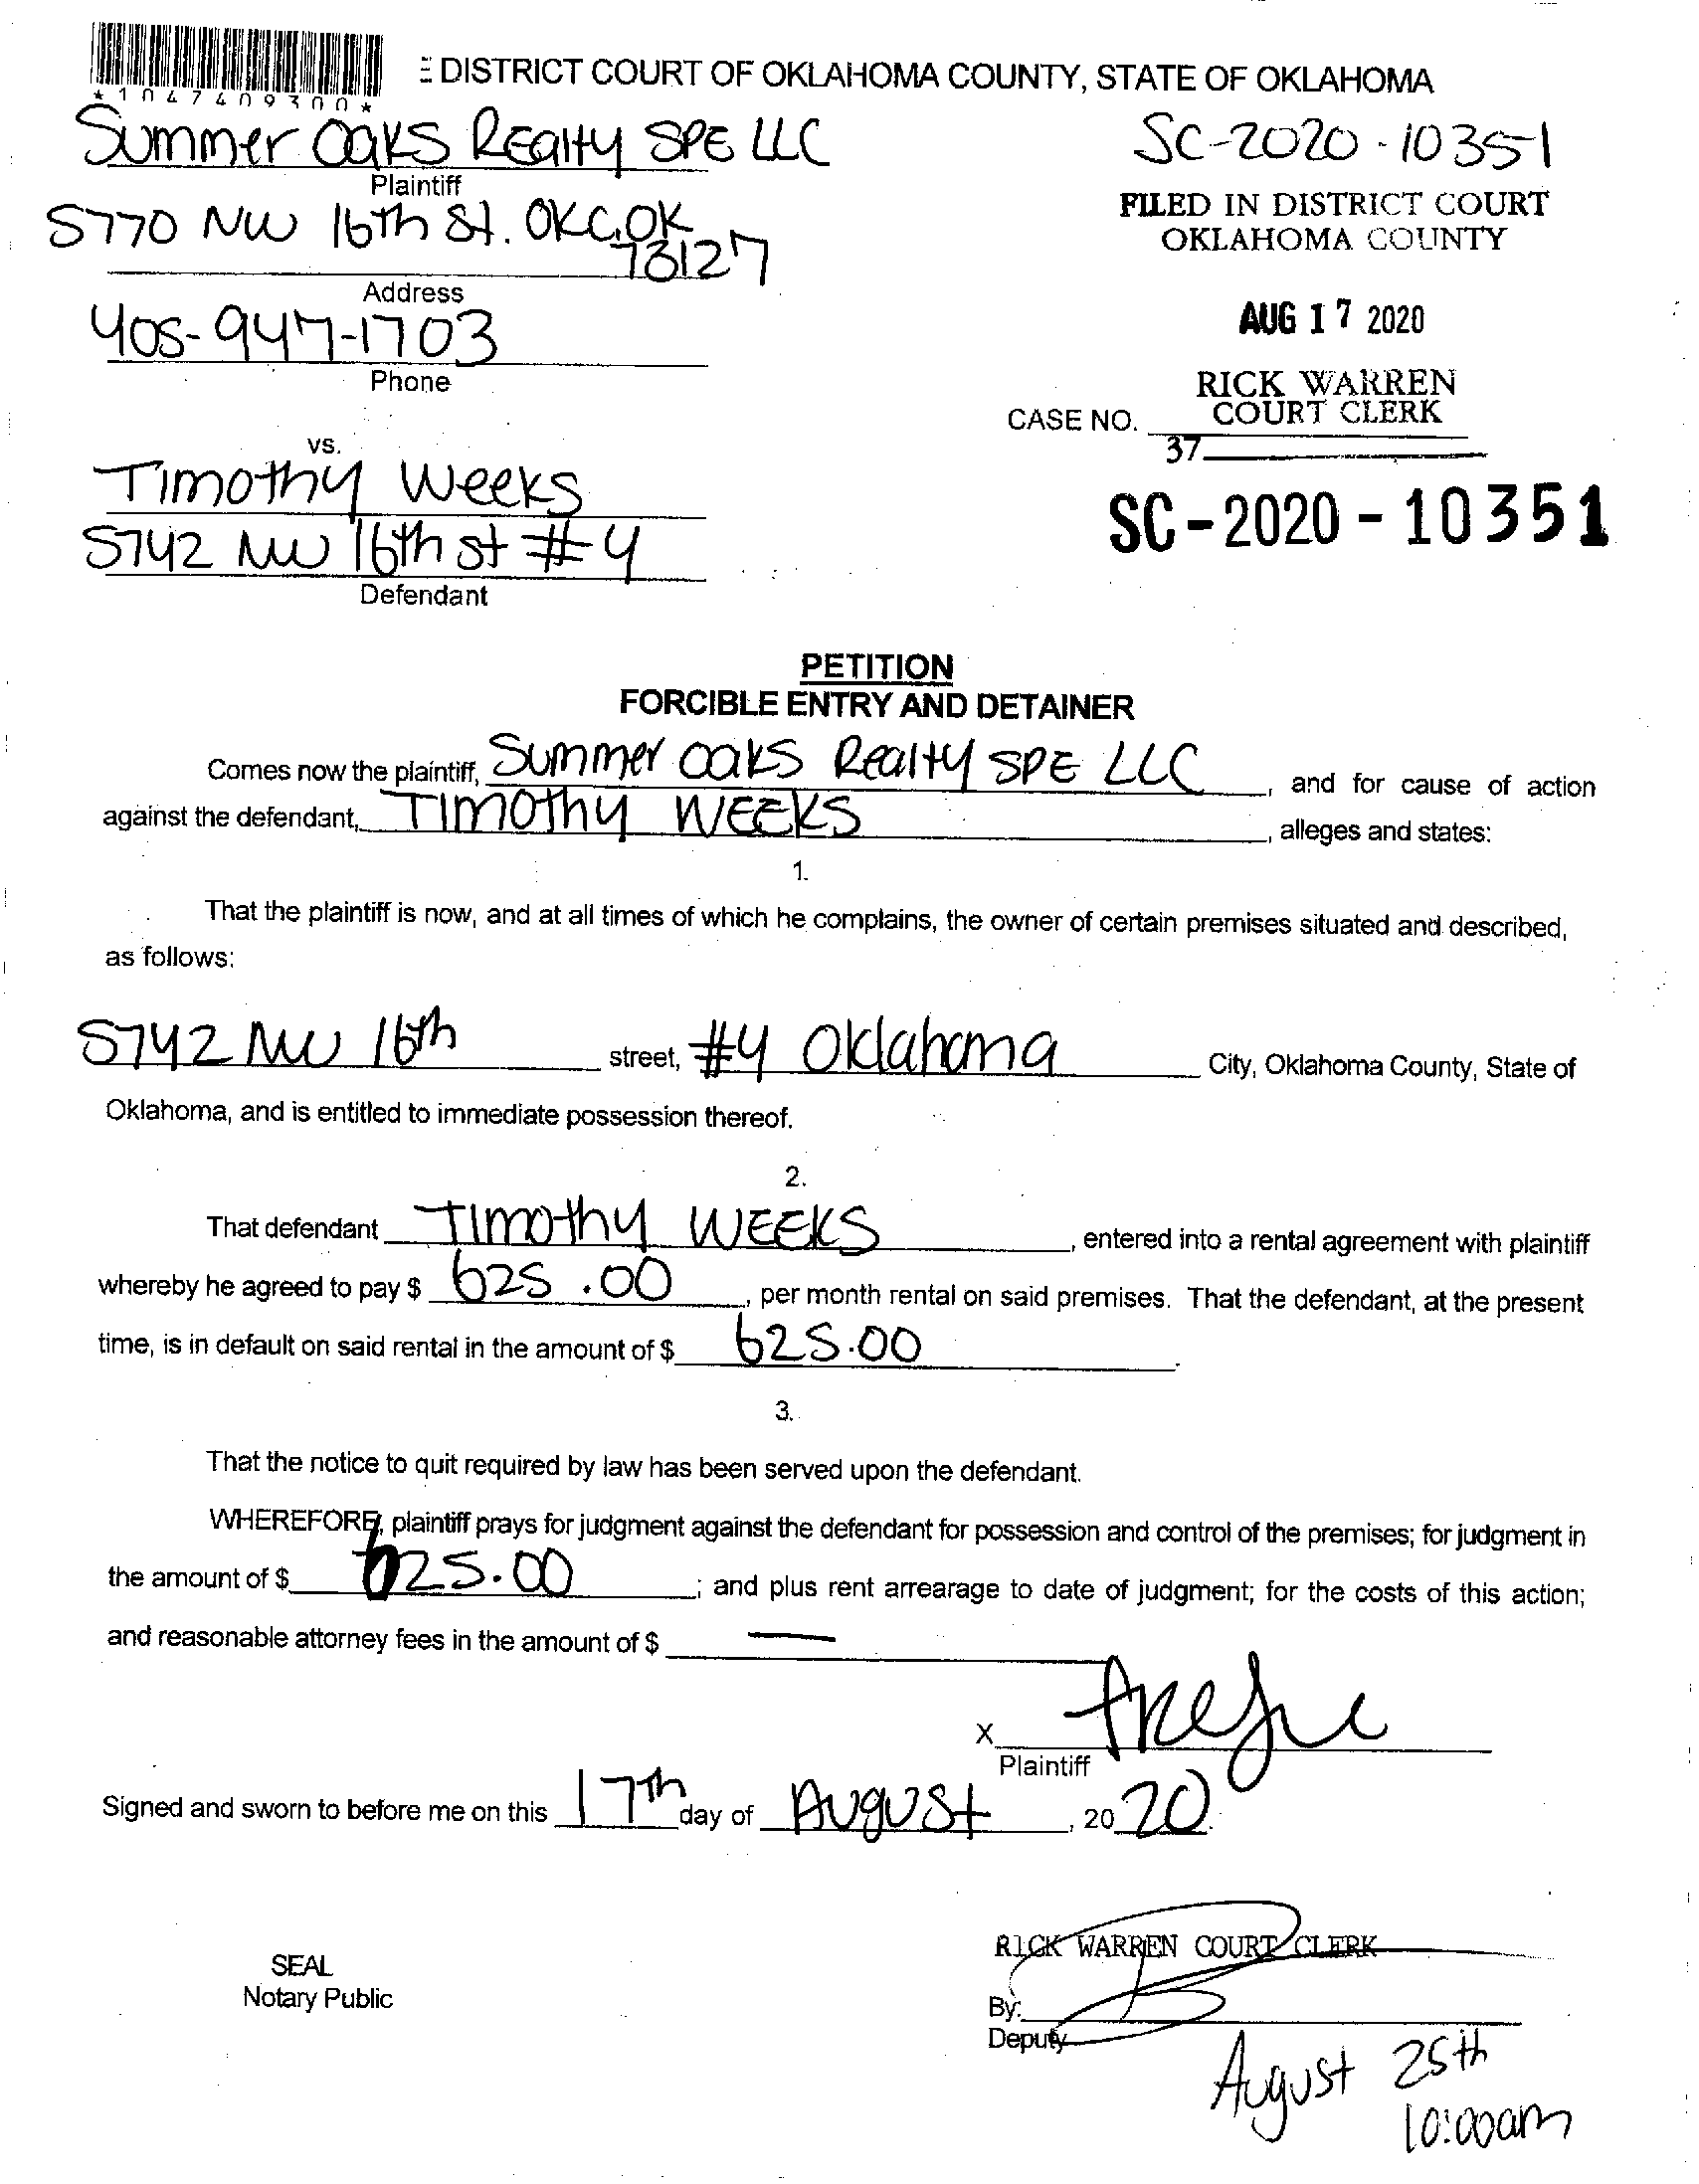 *1047409300*
E DISTRICT COURT OF OKLAHOMA COUNTY, STATE OF OKLAHOMA
Summer Oaks Realty SPE LLC
Plaintiff
SC-2020-10351
5770 NW 16th St. OKC, OK
73127
Address
FILED IN DISTRICT COURT
OKLAHOMA COUNTY
405-947-1703
Phone
AUG 17 2020
RICK WARREN
COURT CLERK
CASE NO.
37
vs.
Timothy Weeks
5742 NW 16th st #4
Defendant
SC-2020-10351
PETITION
FORCIBLE ENTRY AND DETAINER
Comes now the plaintiff, Summer Oaks Realty SPE LLC, and for cause of action
against the defendant, Timothy WEEKS, alleges and states:
1.
That the plaintiff is now, and at all times of which he complains, the owner of certain premises situated and described,
as follows:
5742 NW 16th street, #4 Oklahoma City, Oklahoma County, State of
Oklahoma, and is entitled to immediate possession thereof.
2.
That defendant Timothy WEEKS, entered into a rental agreement with plaintiff
whereby he agreed to pay $ 625.00, per month rental on said premises. That the defendant, at the present
time, is in default on said rental in the amount of $ 625.00.
3.
That the notice to quit required by law has been served upon the defendant.
WHEREFORE, plaintiff prays for judgment against the defendant for possession and control of the premises; for judgment in
the amount of $ 625.00; and plus rent arrearage to date of judgment; for the costs of this action;
and reasonable attorney fees in the amount of $ —
X
Plaintiff
Signed and sworn to before me on this 17th day of August, 2020.
RICK WARREN COURT CLERK
SEAL
Notary Public
By:
Deputy
August 25th
10:00am